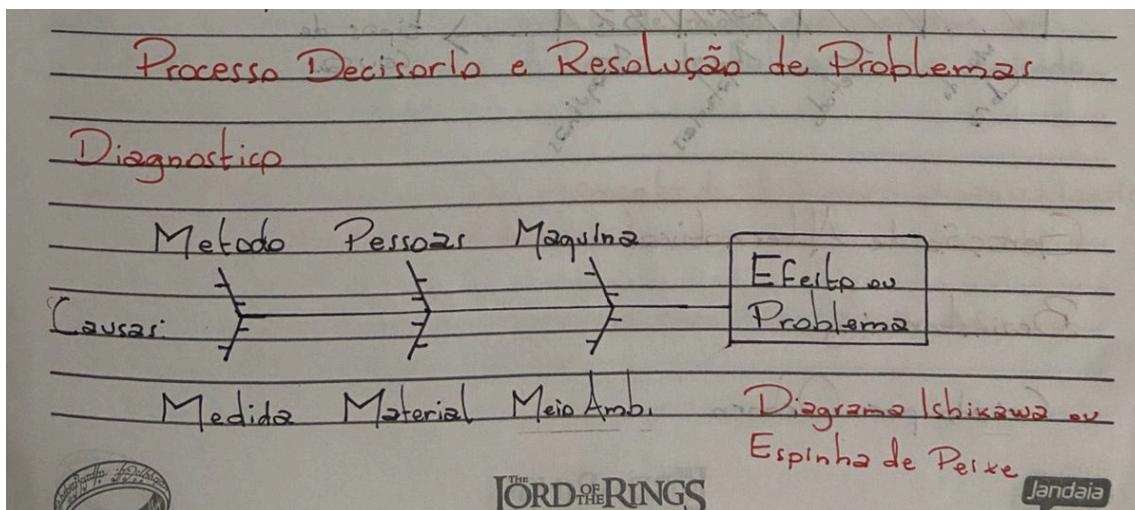 Processo Decisorio e Resolução de Problemas
Diagnostico
Metodo Pessoas Maquina
Causas:
Efeito ou
Problema
Medida Material Meio Amb.
Diagrama Ishikawa ou
Espinha de Peixe
THE LORD OF THE RINGS
Jandaia